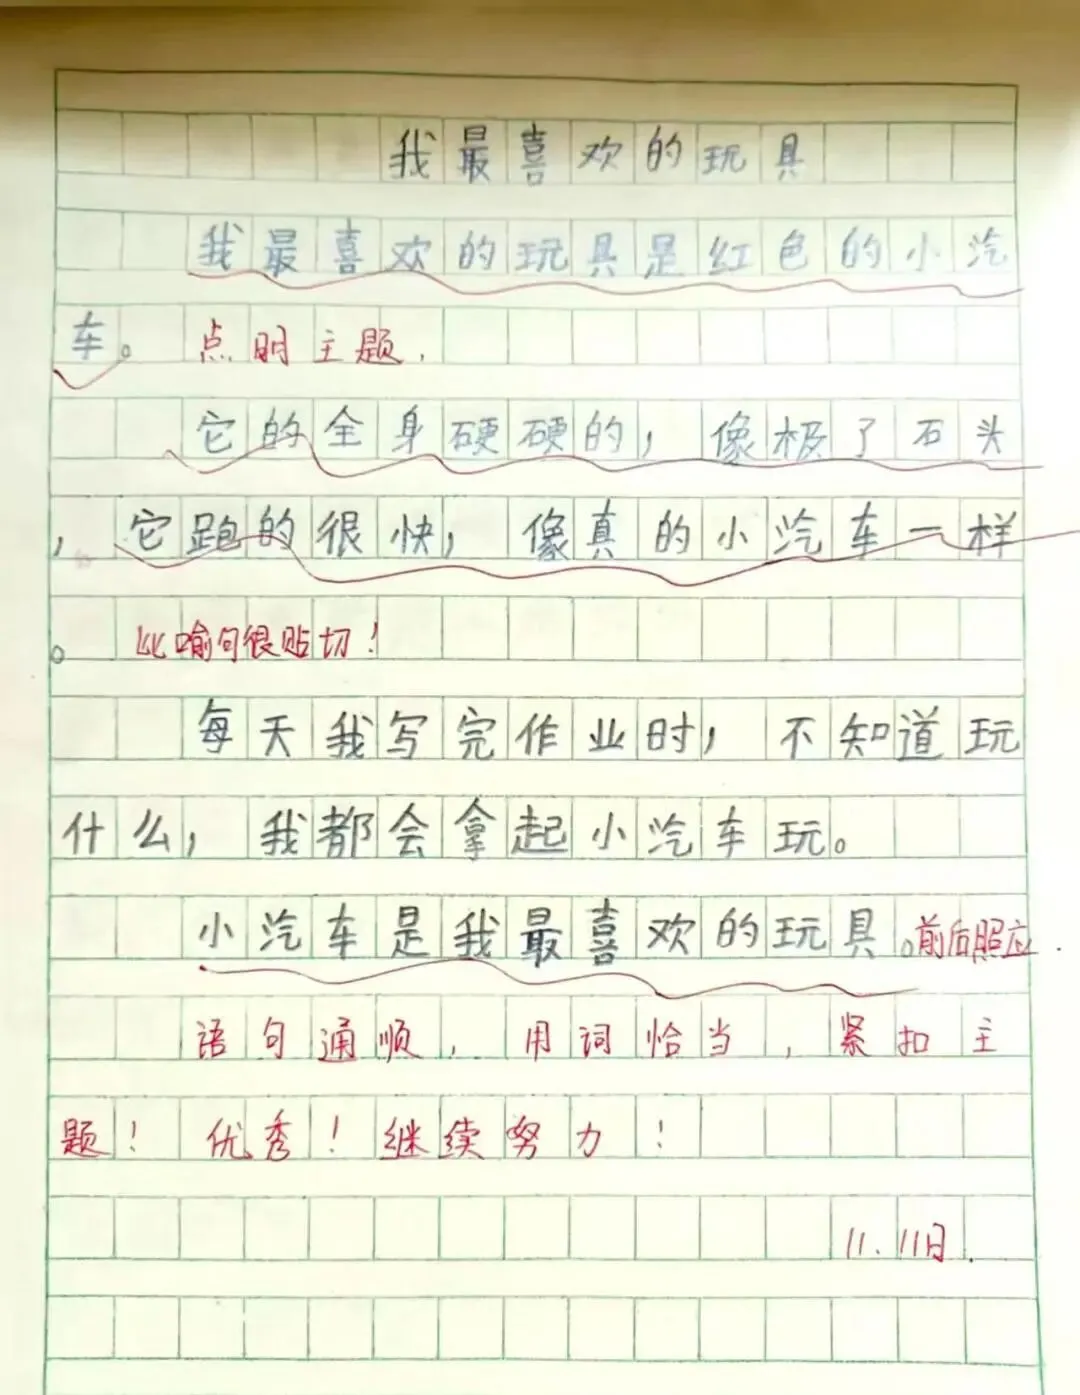 我最喜欢的玩具
我最喜欢的玩具是红色的小汽
车。点明主题.
它的全身硬硬的，像极了石头
，它跑的很快，像真的小汽车一样
。比喻句很贴切！
每天我写完作业时，不知道玩
什么，我都会拿起小汽车玩。
小汽车是我最喜欢的玩具。前后照应.
语句通顺，用词恰当，紧扣主
题！优秀！继续努力！
11.11日.